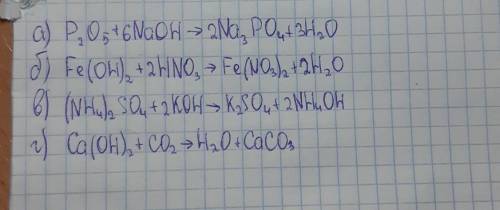 а) P₂O₅+6NaOH→2Na₃PO₄+3H₂O
б) Fe(OH)₂+2HNO₃→Fe(NO₃)₂+2H₂O
в) (NH₄)₂SO₄+2KOH→K₂SO₄+2NH₄OH
г) Ca(OH)₂+CO₂→H₂O+CaCO₃